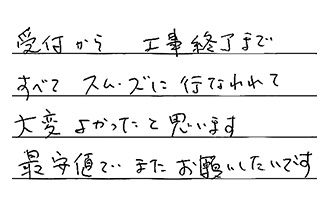 受付から 工事終了まで
すべて スムーズに行なわれて
大変よかったと思います
最安値でまたお願いしたいです